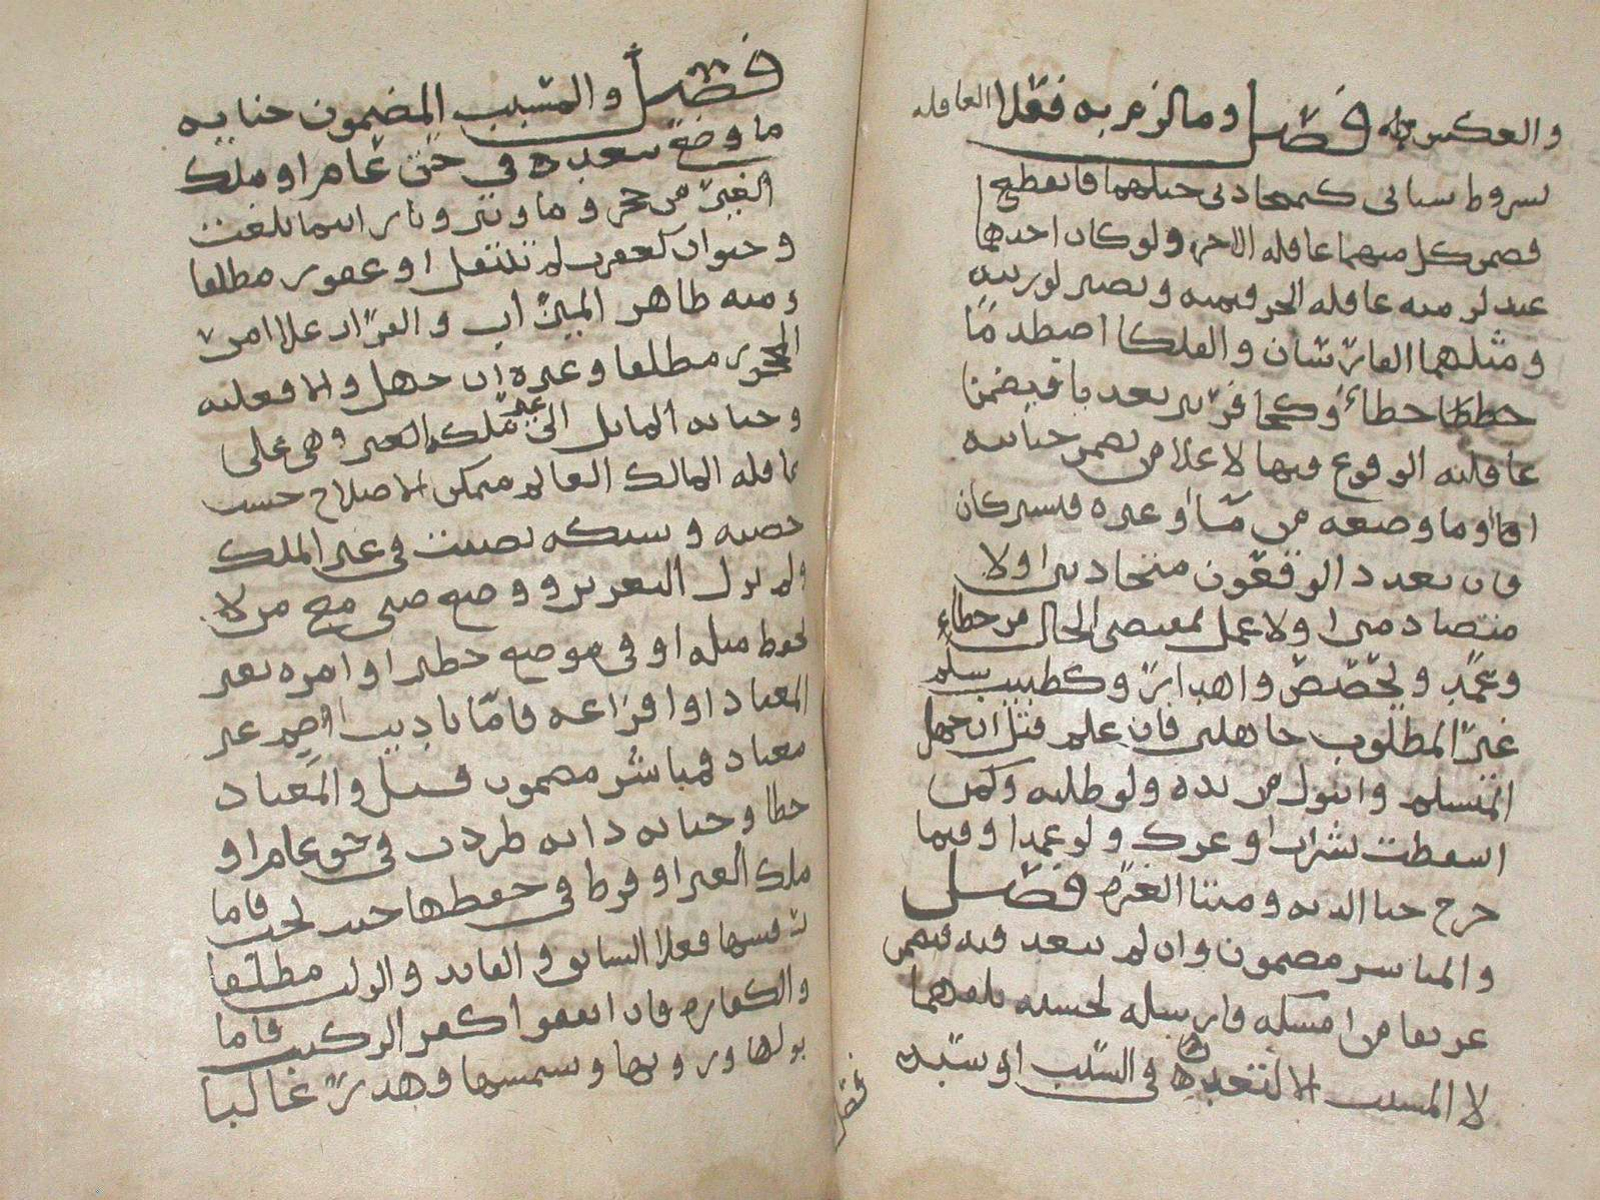 والعكس فصل وما لزم به فعلا العاقله
بسروط ساىى كمتحاذبي حبلهما فانقطع
فيضمن كل منهما عاقله الاخر ولو كان احدهما
عبد لزمت عاقله الحر قيمته وتصير لورثته
ومثلهما الفارسان والفلكا اصطدما
خطا وكحافر بير تعديا فيضمن
عاقلته الوقوع فيها لا على من تضمن جنايته
او ما وضعه من ماء او غيره فيشتركان
وان تعدد الواقعون متجاذبين او لا
متصادمين او لا عمل بمقتضى الحال من خطاء
وعمد وتحصص واهدار وكطبيب سلم
غير المطلوب جاهلين فان علم قتل ان جهل
المتسلم وانتول من يده ولو طلبه وكمن
اسقطت بشراب او عرك ولو عمدا وفيما
خرج حيا الديه وميتا الغره فصل
والمباشر مضمون وان لم يتعد فيه فيضمن
غريقا من امسكه فارسله لخشيه تلفهما
لا المسبب الا لتعديه في السبب او سببه
فصل والمسبب المضمون جنايه
ما وضع بتعديه في حق عام او ملك
الغير من حجر وماء وبير ونار اينما بلغت
وحيوان كعقرب لم تنتقل او عقور مطلقا
ومنه ظاهر الميزاب والقرار على امر
المحجر مطلقا وغيره ان جهل والا فعليه
وجنايه المايل الى غير ملكه الغير وهي على
عاقله المالك العالم متمكن الاصلاح حسب
حصته وشبكه نصبت في غير الملك
ولم يزل التغرير ووضع صبي مع من لا
يحفظ مثله او في موضع خطر او امره بغير
المعتاد او افزاعه فاما تاديب او ضم غير
معتاد فمباشر مضمون قيل والمعتاد
خطا وجنايه دابه طردت في حق عام او
ملك الغير او فرط في حفظها حيث يجب فاما
رفسها فعلى السايق والقايد والراكب مطلقا
والكفاره فان اتفقوا كفر الراكب فاما
بولها وروثها وشمسها فهدر غالبا
فصل